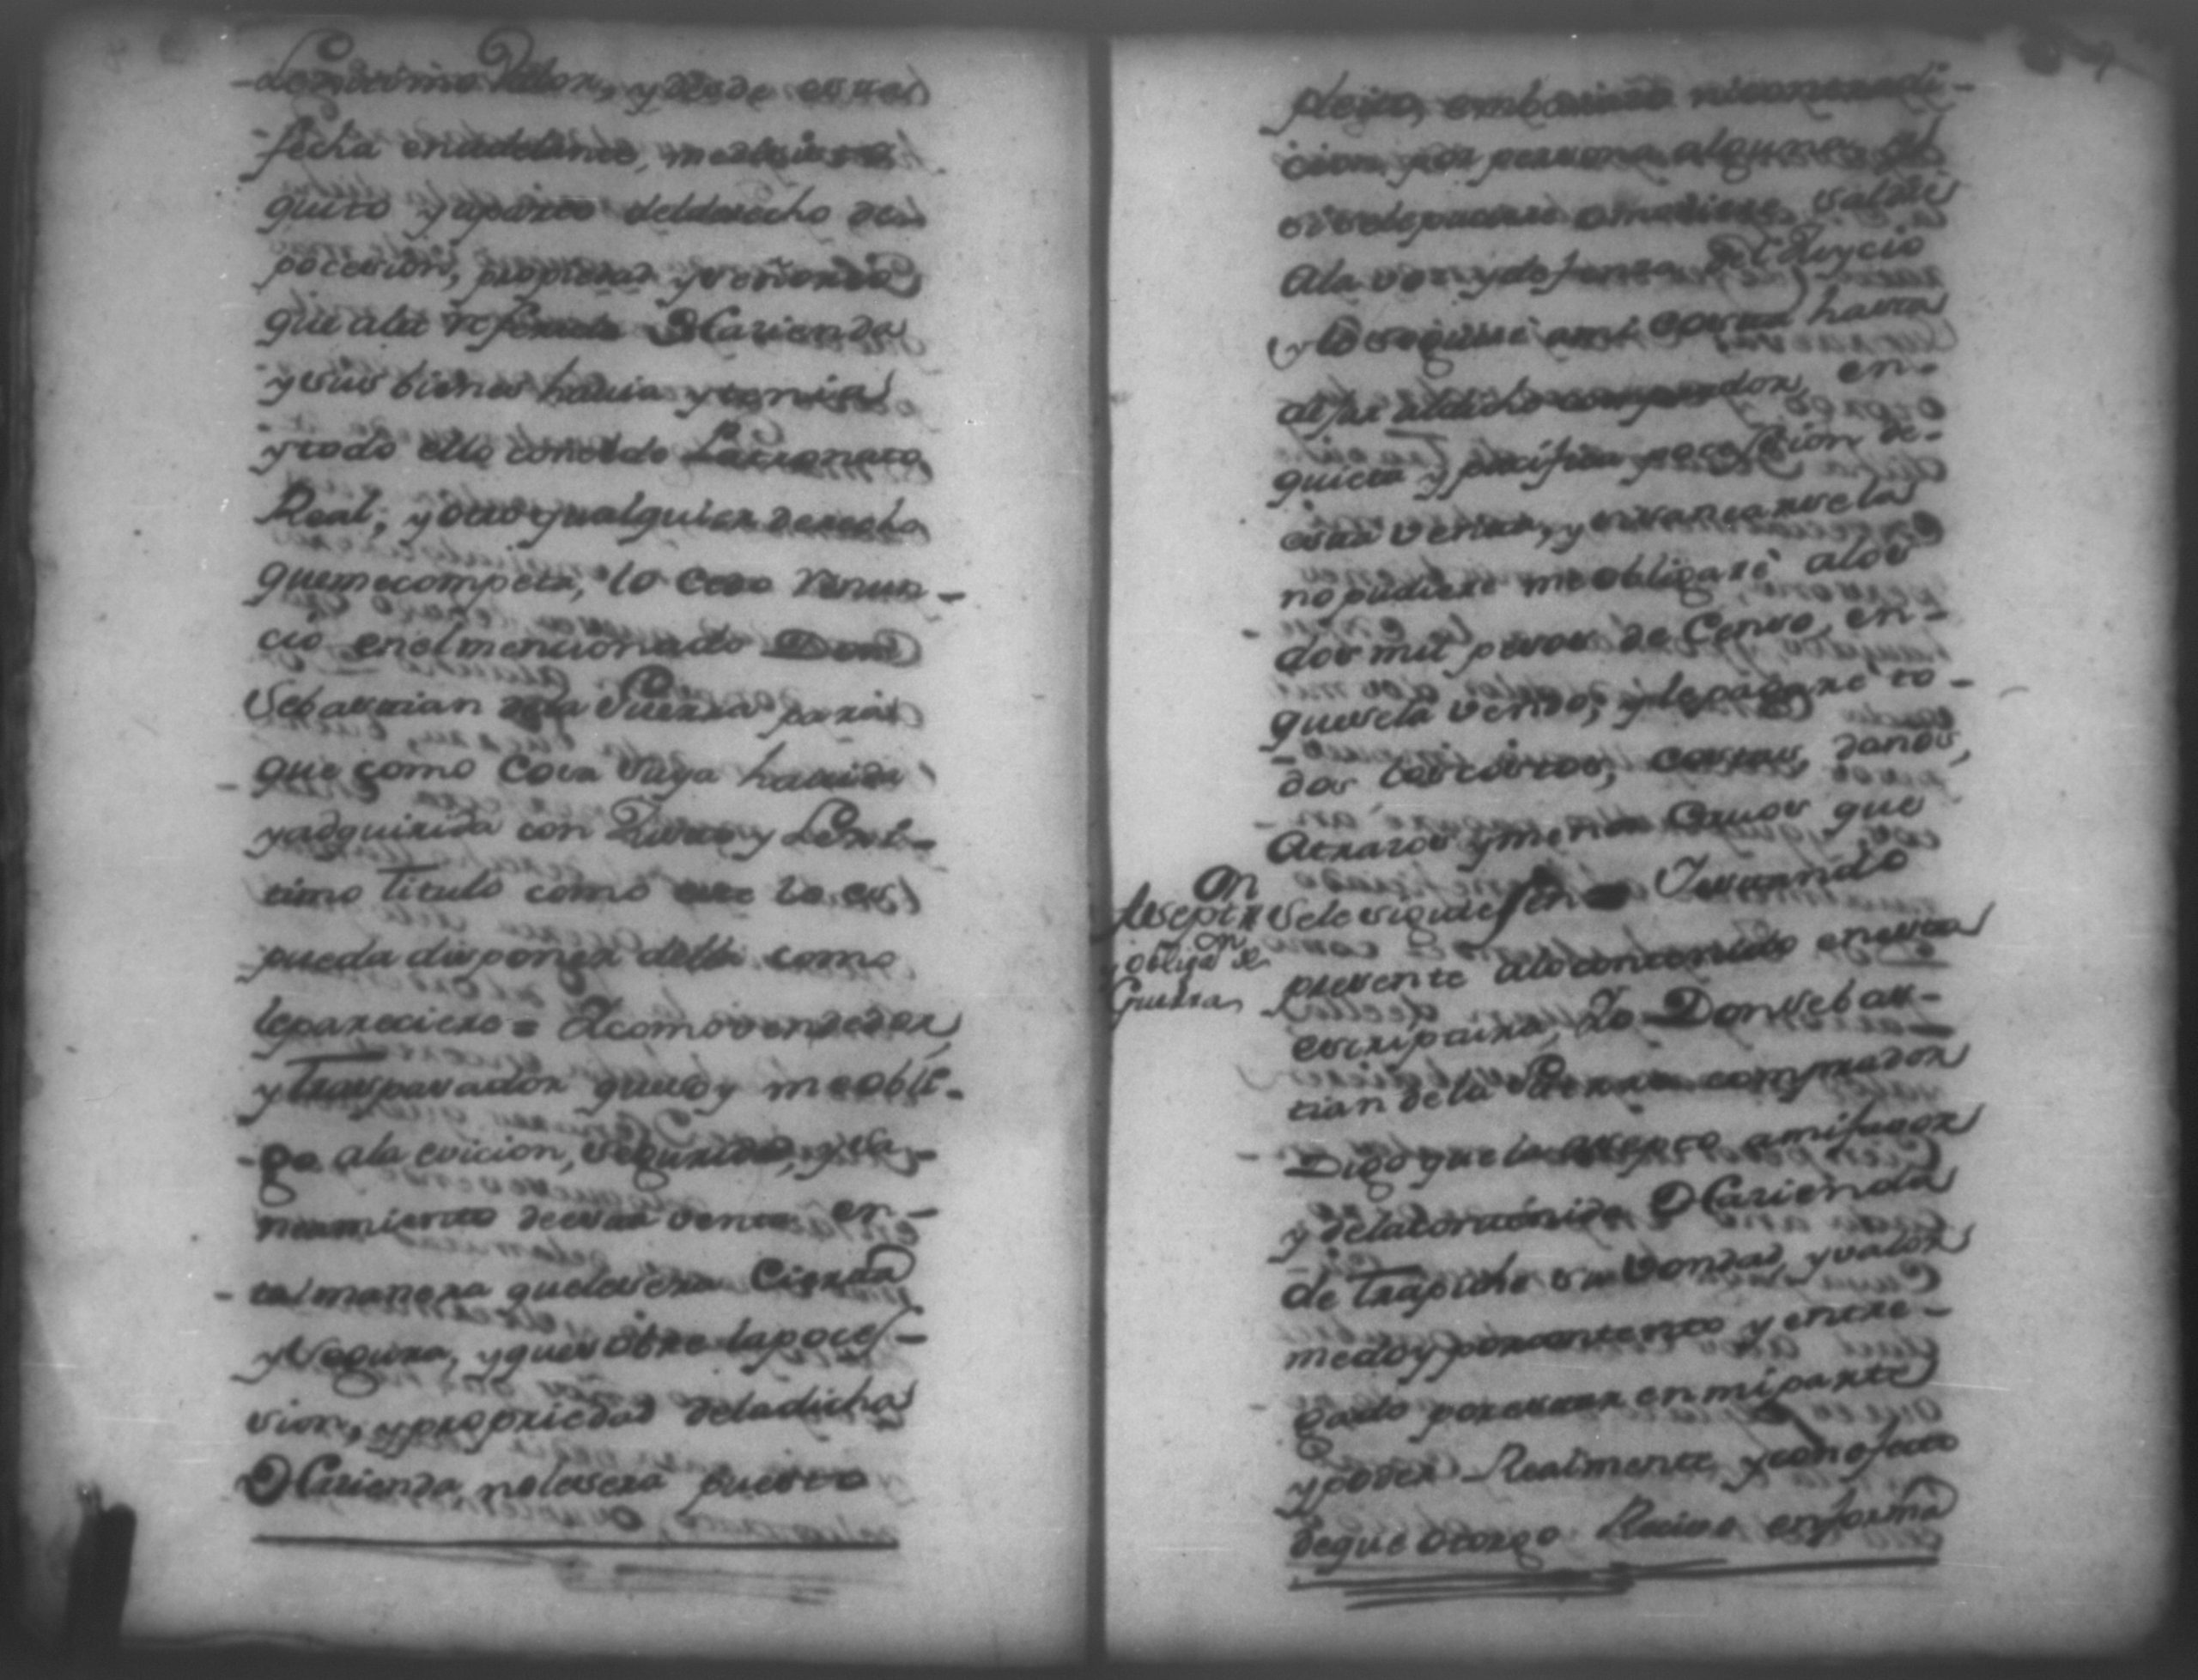 Lexitimo Valor, y desde esta
fecha en adelante, me desisto
quito y aparto del derecho de
pocesion, propiedad y señorio
que ala referida Hacienda
y sus bienes havia y tenia
y todo ello con el de Patronato
Real, y otro qualquier derecho
que me competa, lo cedo renun-
cio en el mencionado Don
Sebastian de la Guerra para
que como Cosa Suya havida
y adquirida con Justo y Lexi-
timo Titulo como este lo es
pueda disponer della como
le pareciere = Y como vendedor
y Traspasador que soy me obli-
go ala evicion, seguridad, y sa-
neamiento de esta venta en-
tal manera que le sera Cierta
y Segura, y que sobre la poces-
sion, y propriedad de la dicha
Hacienda no le sera puesto
pleito, embarazo ni contradi-
cion por persona alguna, y
si se le pusiere o moviere, saldré
ala voz y defensa del Juycio
y lo seguiré a mi Costa hasta
dejar al dicho comprador, en-
quieta y pacifica pocession de-
esta venta, y si sanearsela
no pudiere me obligaré alos
dos mil pesos de Censo, en-
que se la vendo; y le pagaré to-
dos los costos, costas, daños,
Atrazos y menos Cavos que
Asept.on
y oblig.on de
Guerra
se le siguiesen = Y estando
presente alo contenido en esta
escriptura, Yo Don Sebas-
tian de la Guerra comprador
Digo que la assepto a mi favor
y de la contenida Hacienda
de Trapiche su vondad, y valor
me doy por contento y entre-
gado por estar en mi parte
y poder Realmente y con efecto
de que otorgo Recivo en forma